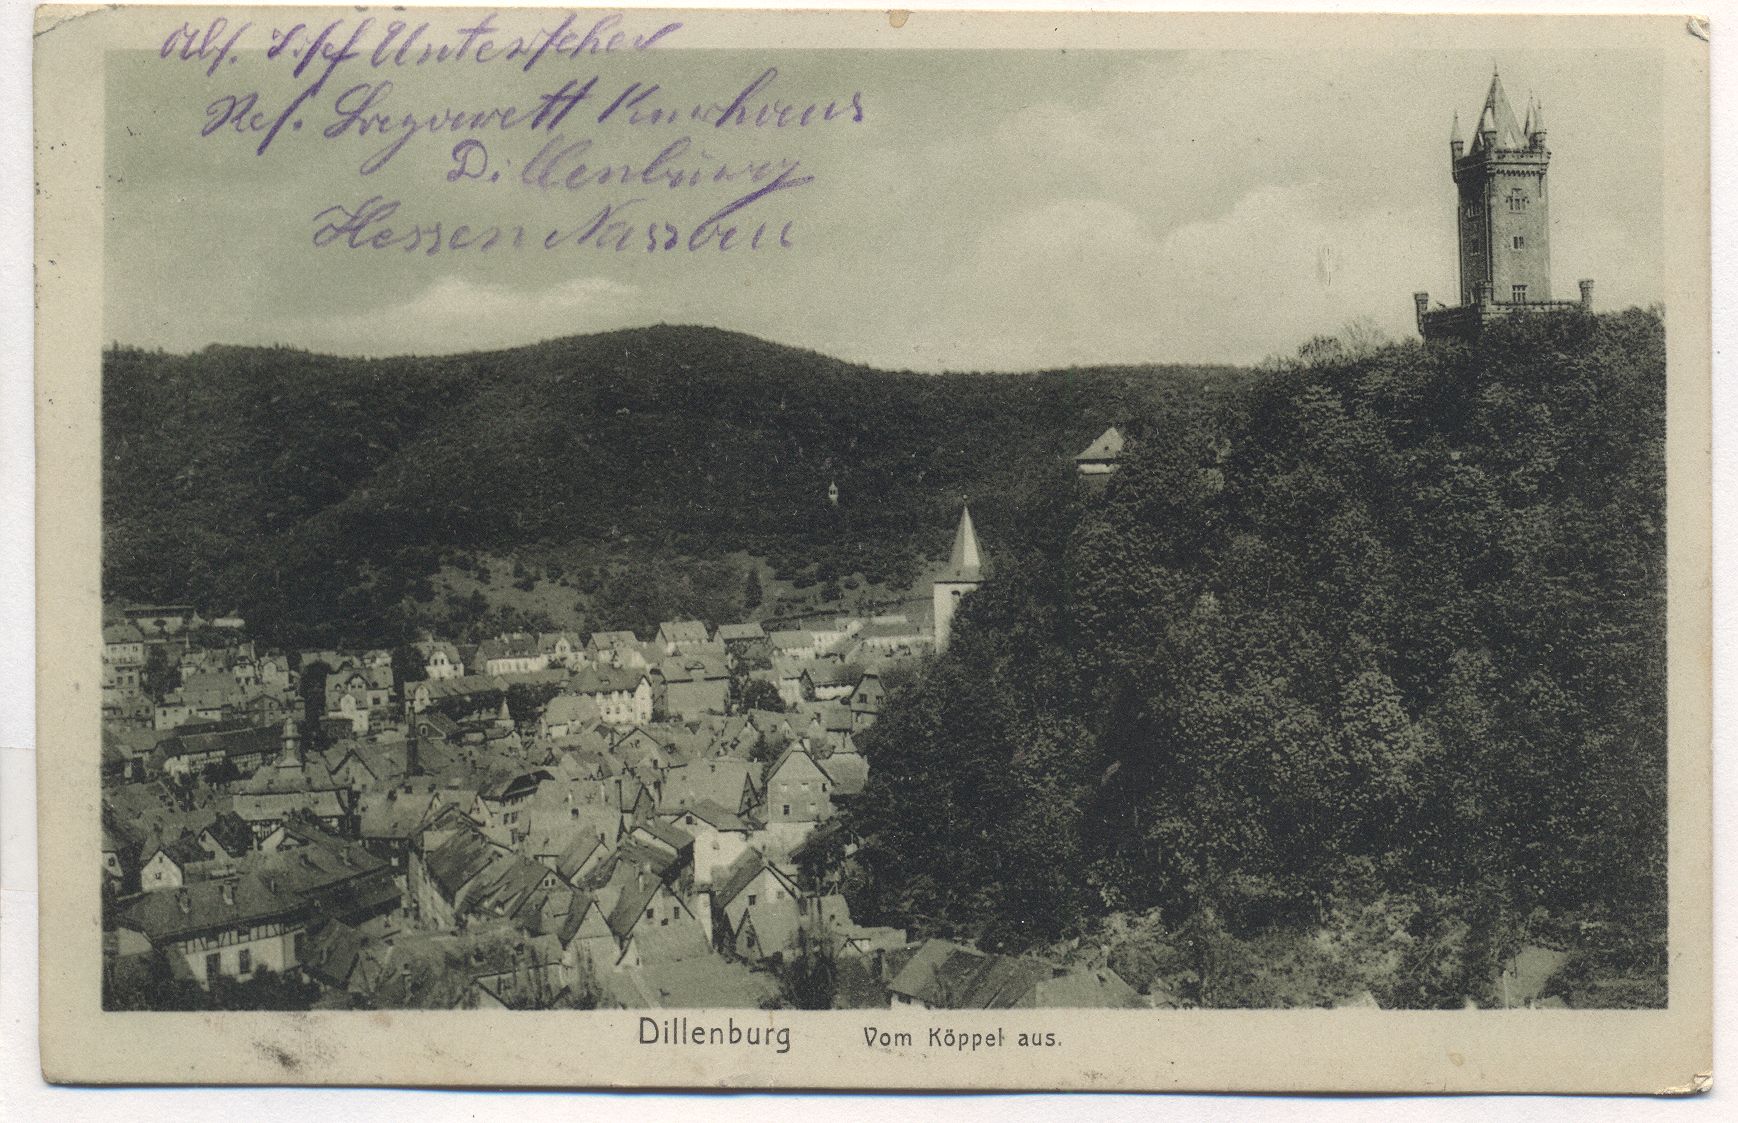 Abs. Josef Unterscher
Res. Lazarett Kurhaus
Dillenburg
Hessen Nassau
Dillenburg Vom Köppel aus.